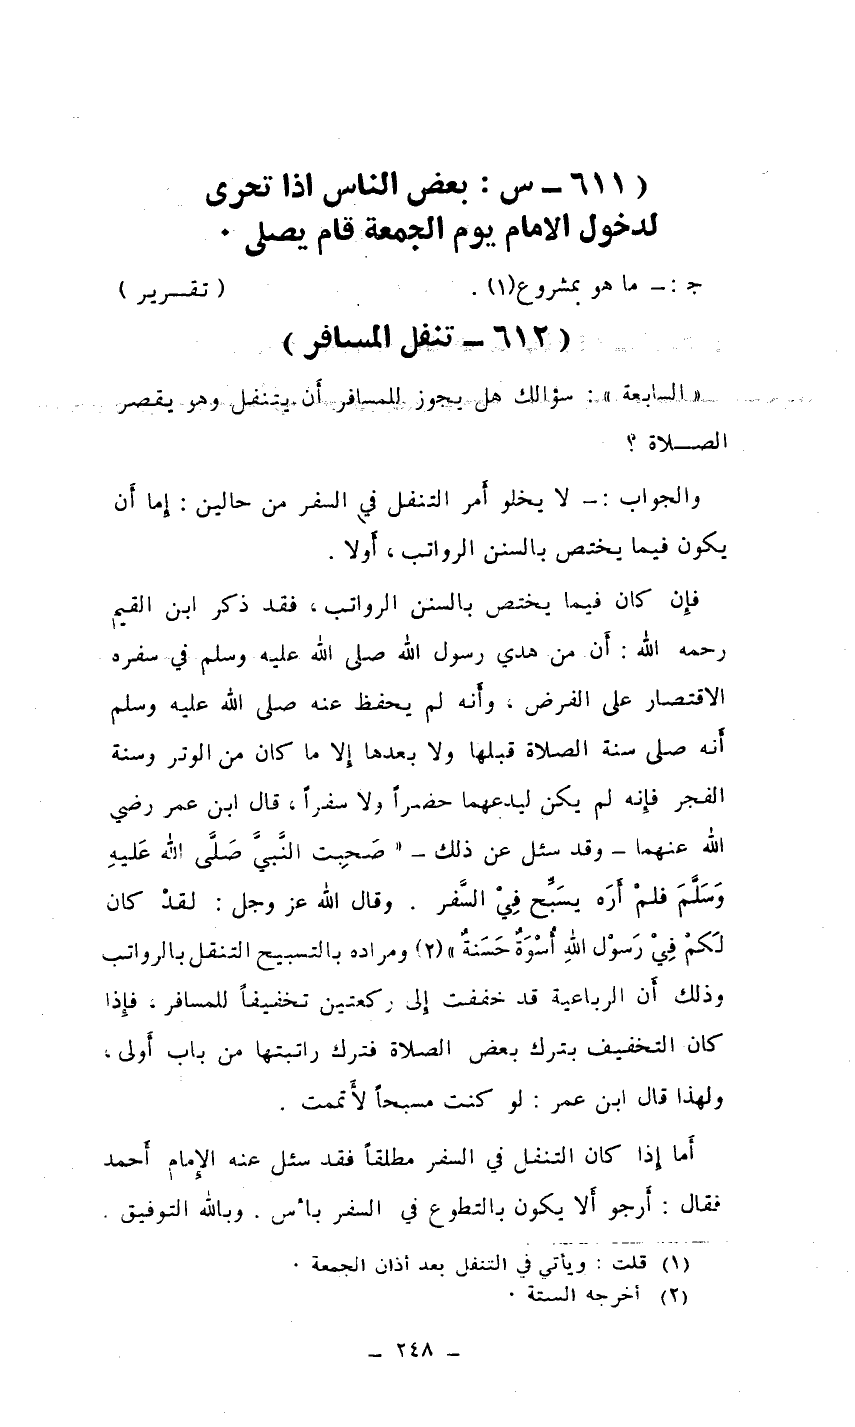 ( ٦١١ – س : بعض الناس اذا تحرى
لدخول الامام يوم الجمعة قام يصلى ٠
ج : – ما هو بمشروع(١) . ( تقـــرير )
( ٦١٢ – تنفل المسافر )
« السابعة » : سؤالك هل يجوز للمسافر أن يتنفل وهو يقصر
الصــلاة ؟
والجواب : – لا يخلو أمر التنفل في السفر من حالين : إما أن
يكون فيما يختص بالسنن الرواتب ، أولا .
فإن كان فيما يختص بالسنن الرواتب ، فقد ذكر ابن القيم
رحمه الله : أن من هدي رسول الله صلى الله عليه وسلم في سفره
الاقتصار على الفرض ، وأنه لم يحفظ عنه صلى الله عليه وسلم
أنه صلى سنة الصلاة قبلها ولا بعدها إلا ما كان من الوتر وسنة
الفجر فإنه لم يكن ليدعهما حضراً ولا سفراً ، قال ابن عمر رضي
الله عنهما – وقد سئل عن ذلك – " صَحِبت النَّبيَّ صَلَّى الله عَليهِ
وَسَلَّمَ فلمْ أرَه يسَبِّح فِيْ السَّفر . وقال الله عز وجل : لقدْ كان
لَكمْ فِيْ رَسوْل اللهِ أُسْوَةٌ حَسَنةٌ »(٢) ومراده بالتسبيح التنفل بالرواتب
وذلك أن الرباعية قد خففت إلى ركعتين تخفيفاً للمسافر ، فإذا
كان التخفيف بترك بعض الصلاة فترك راتبتها من باب أولى ،
ولهذا قال ابن عمر : لو كنت مسبحاً لأتممت .
أما إذا كان التنفل في السفر مطلقاً فقد سئل عنه الإمام أحمد
فقال : أرجو ألا يكون بالتطوع في السفر بأس . وبالله التوفيق .
(١) قلت : ويأتي في التنفل بعد أذان الجمعة ٠
(٢) أخرجه الستة ٠
– ٢٤٨ –